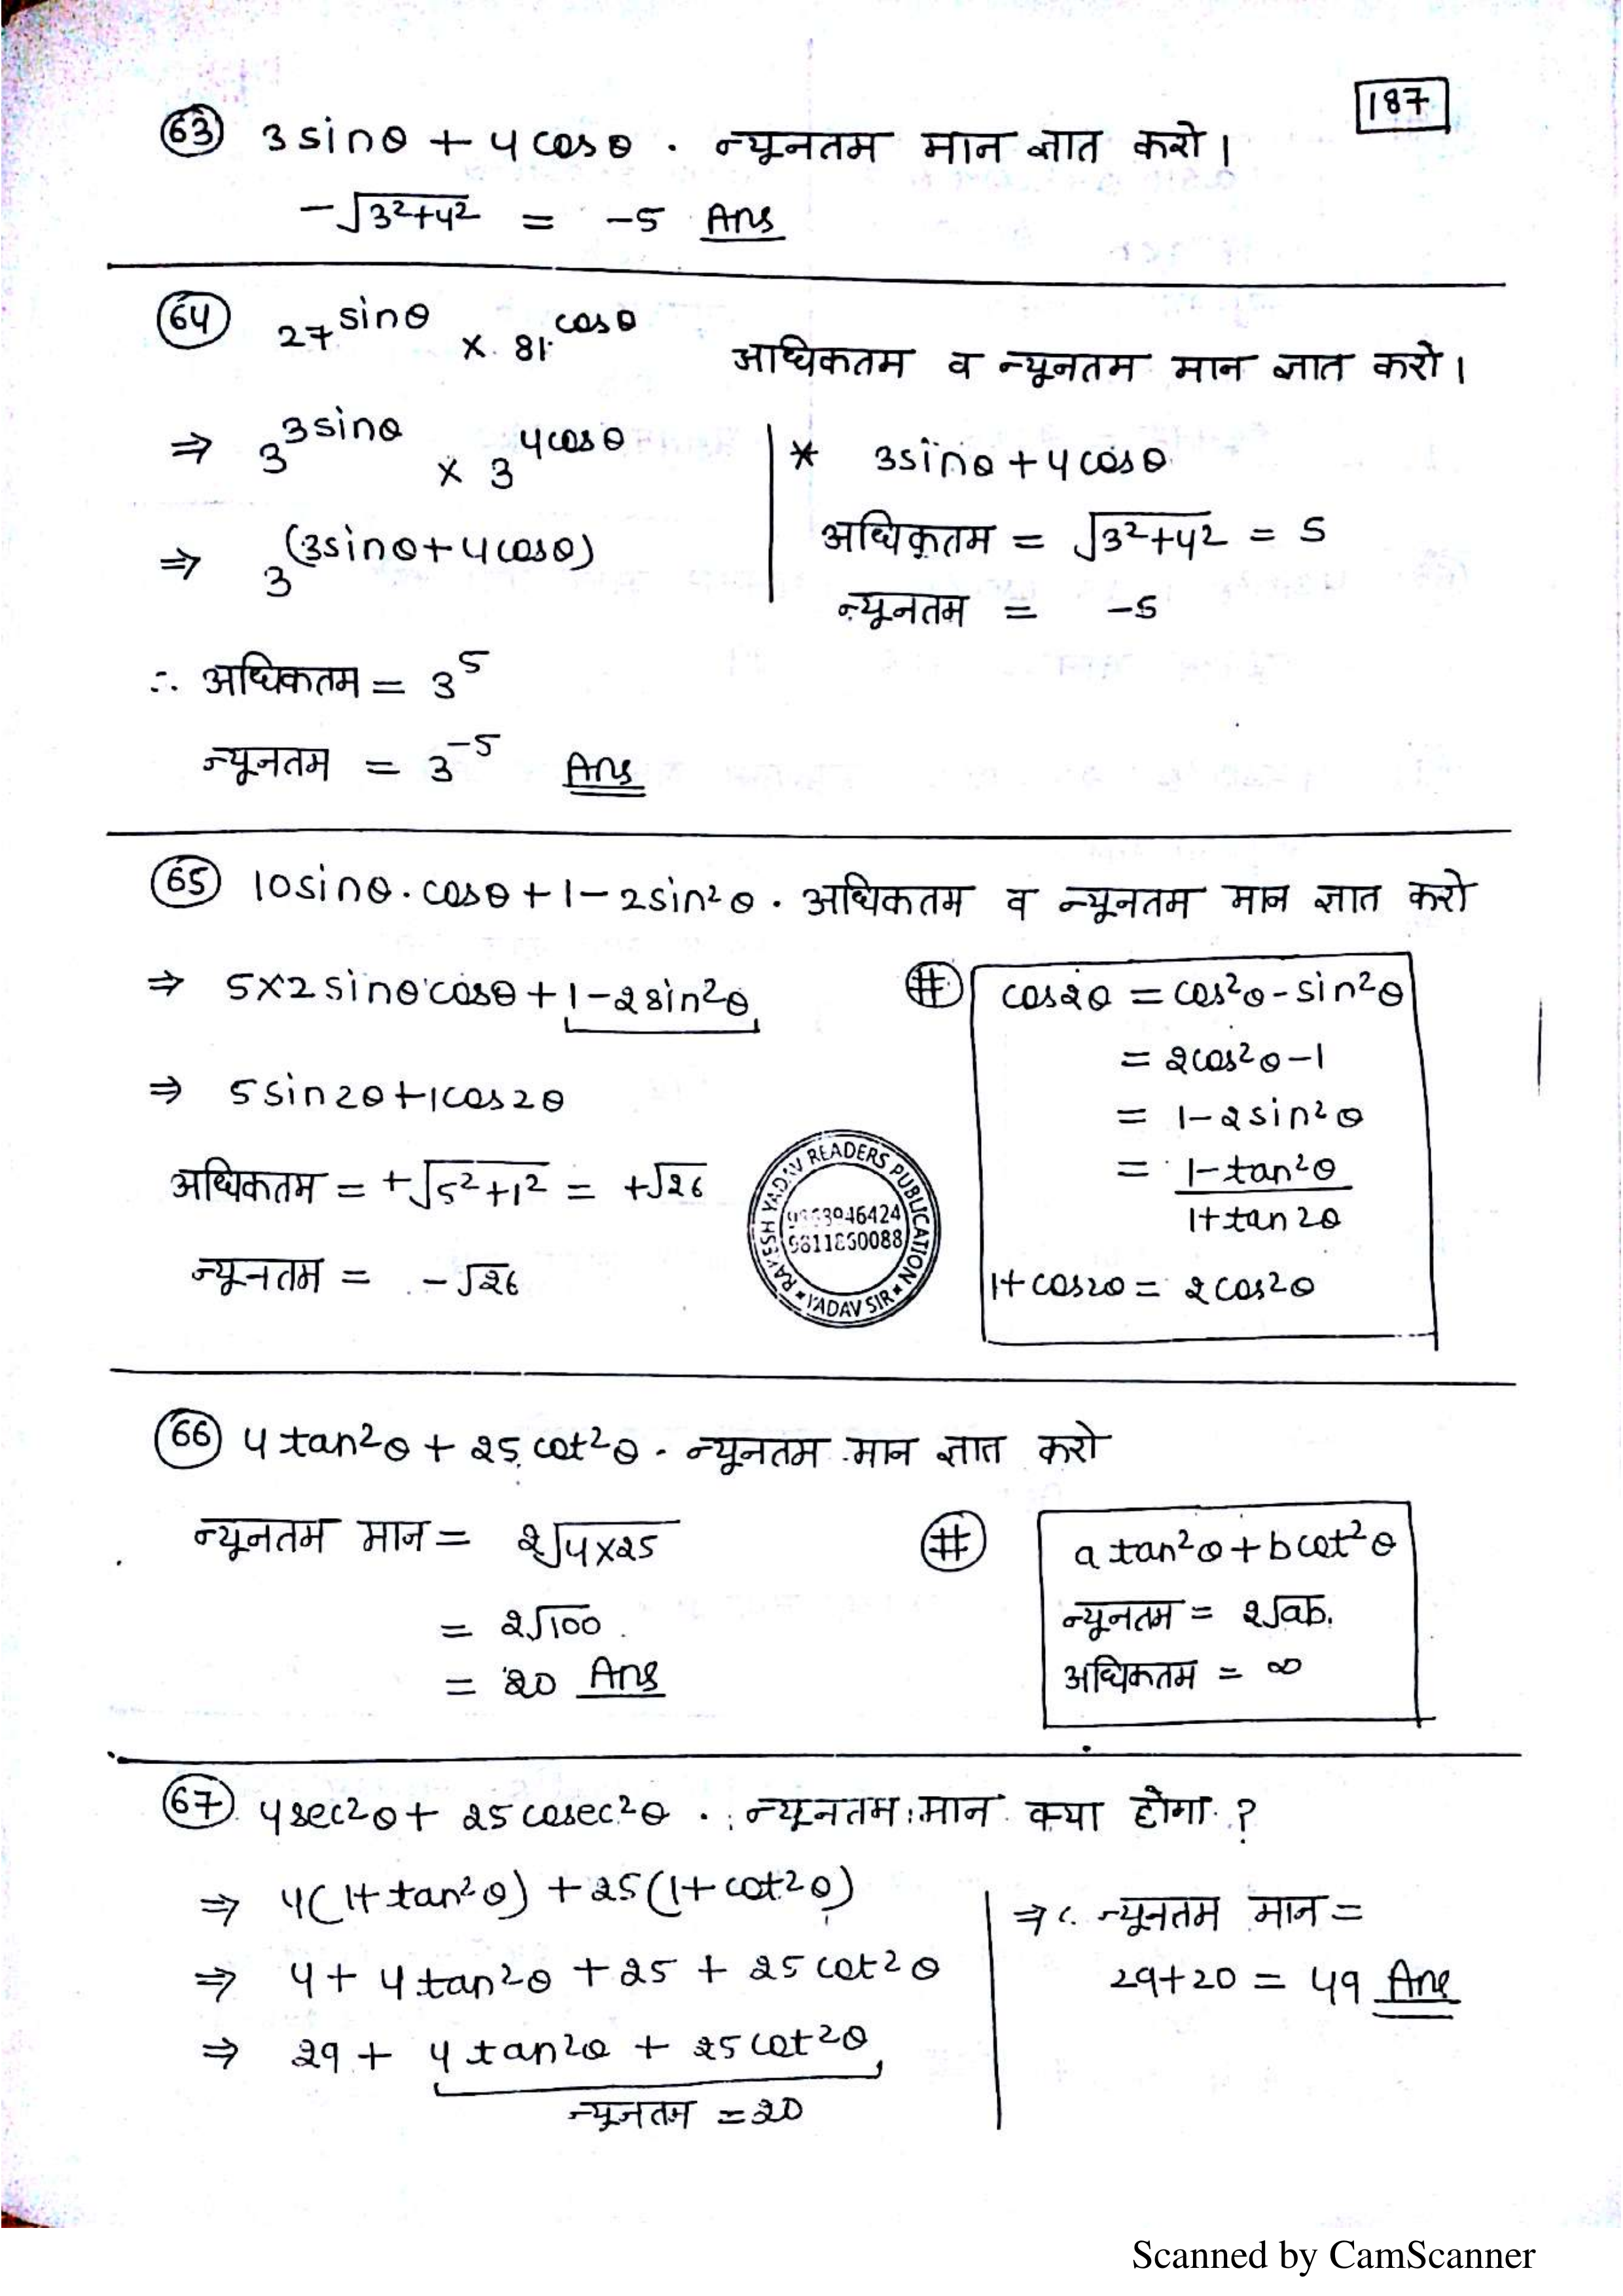 187
(63) 3sinθ + 4cosθ . न्यूनतम मान ज्ञात करो।
-√(3²+4²) = -5 Ans
(64) 27^sinθ × 81^cosθ अधिकतम व न्यूनतम मान ज्ञात करो।
⇒ 3^3sinθ × 3^4cosθ
⇒ 3^(3sinθ+4cosθ)
* 3sinθ + 4cosθ
अधिकतम = √(3²+4²) = 5
न्यूनतम = -5
∴ अधिकतम = 3^5
न्यूनतम = 3^-5 Ans
(65) 10sinθ.cosθ + 1 - 2sin²θ . अधिकतम व न्यूनतम मान ज्ञात करो
⇒ 5×2sinθcosθ + 1-2sin²θ
⇒ 5sin2θ+1cos2θ
अधिकतम = +√(5²+1²) = +√26
न्यूनतम = -√26
# cos2θ = cos²θ - sin²θ
= 2cos²θ-1
= 1-2sin²θ
= (1-tan²θ)/(1+tan2θ)
1+cos2θ = 2cos²θ
RAVESH YADAV READERS PUBLICATION
9811860088
YADAV SIR
(66) 4tan²θ + 25cot²θ . न्यूनतम मान ज्ञात करो
न्यूनतम मान = 2√(4×25)
= 2√100
= 20 Ans
# a tan²θ + b cot²θ
न्यूनतम = 2√ab.
अधिकतम = ∞
(67) 4sec²θ + 25cosec²θ . न्यूनतम मान क्या होगा ?
⇒ 4(1+tan²θ) + 25(1+cot²θ)
⇒ 4 + 4tan²θ + 25 + 25cot²θ
⇒ 29 + 4tan²θ + 25cot²θ
न्यूनतम = 20
⇒ ∴ न्यूनतम मान =
29+20 = 49 Ans
Scanned by CamScanner